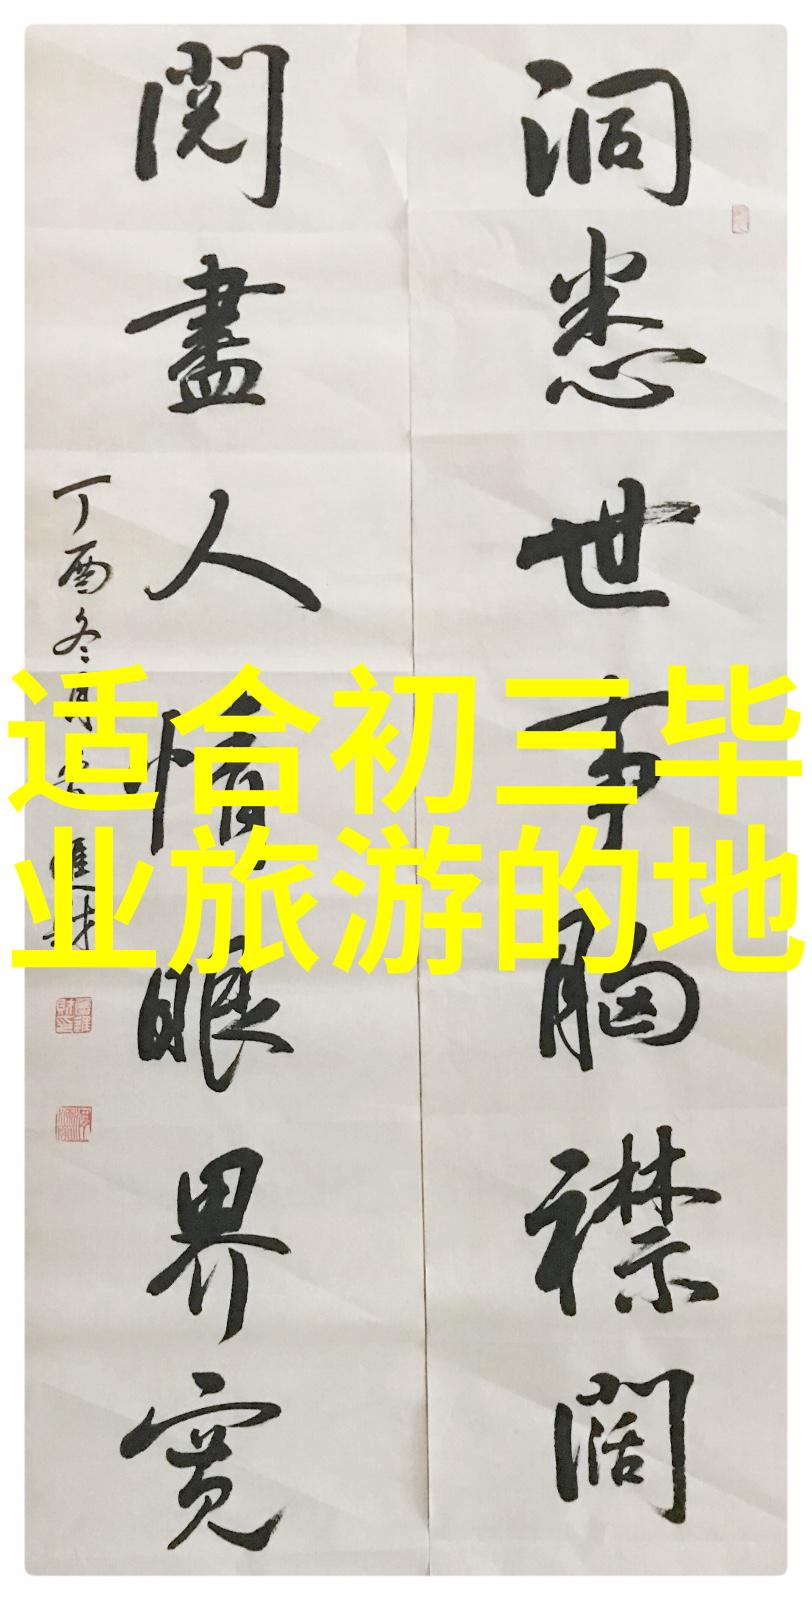 洞悉世事胸襟阔
閱盡人情眼界寬
丁酉冬月
適合初三毕
业旅游的地